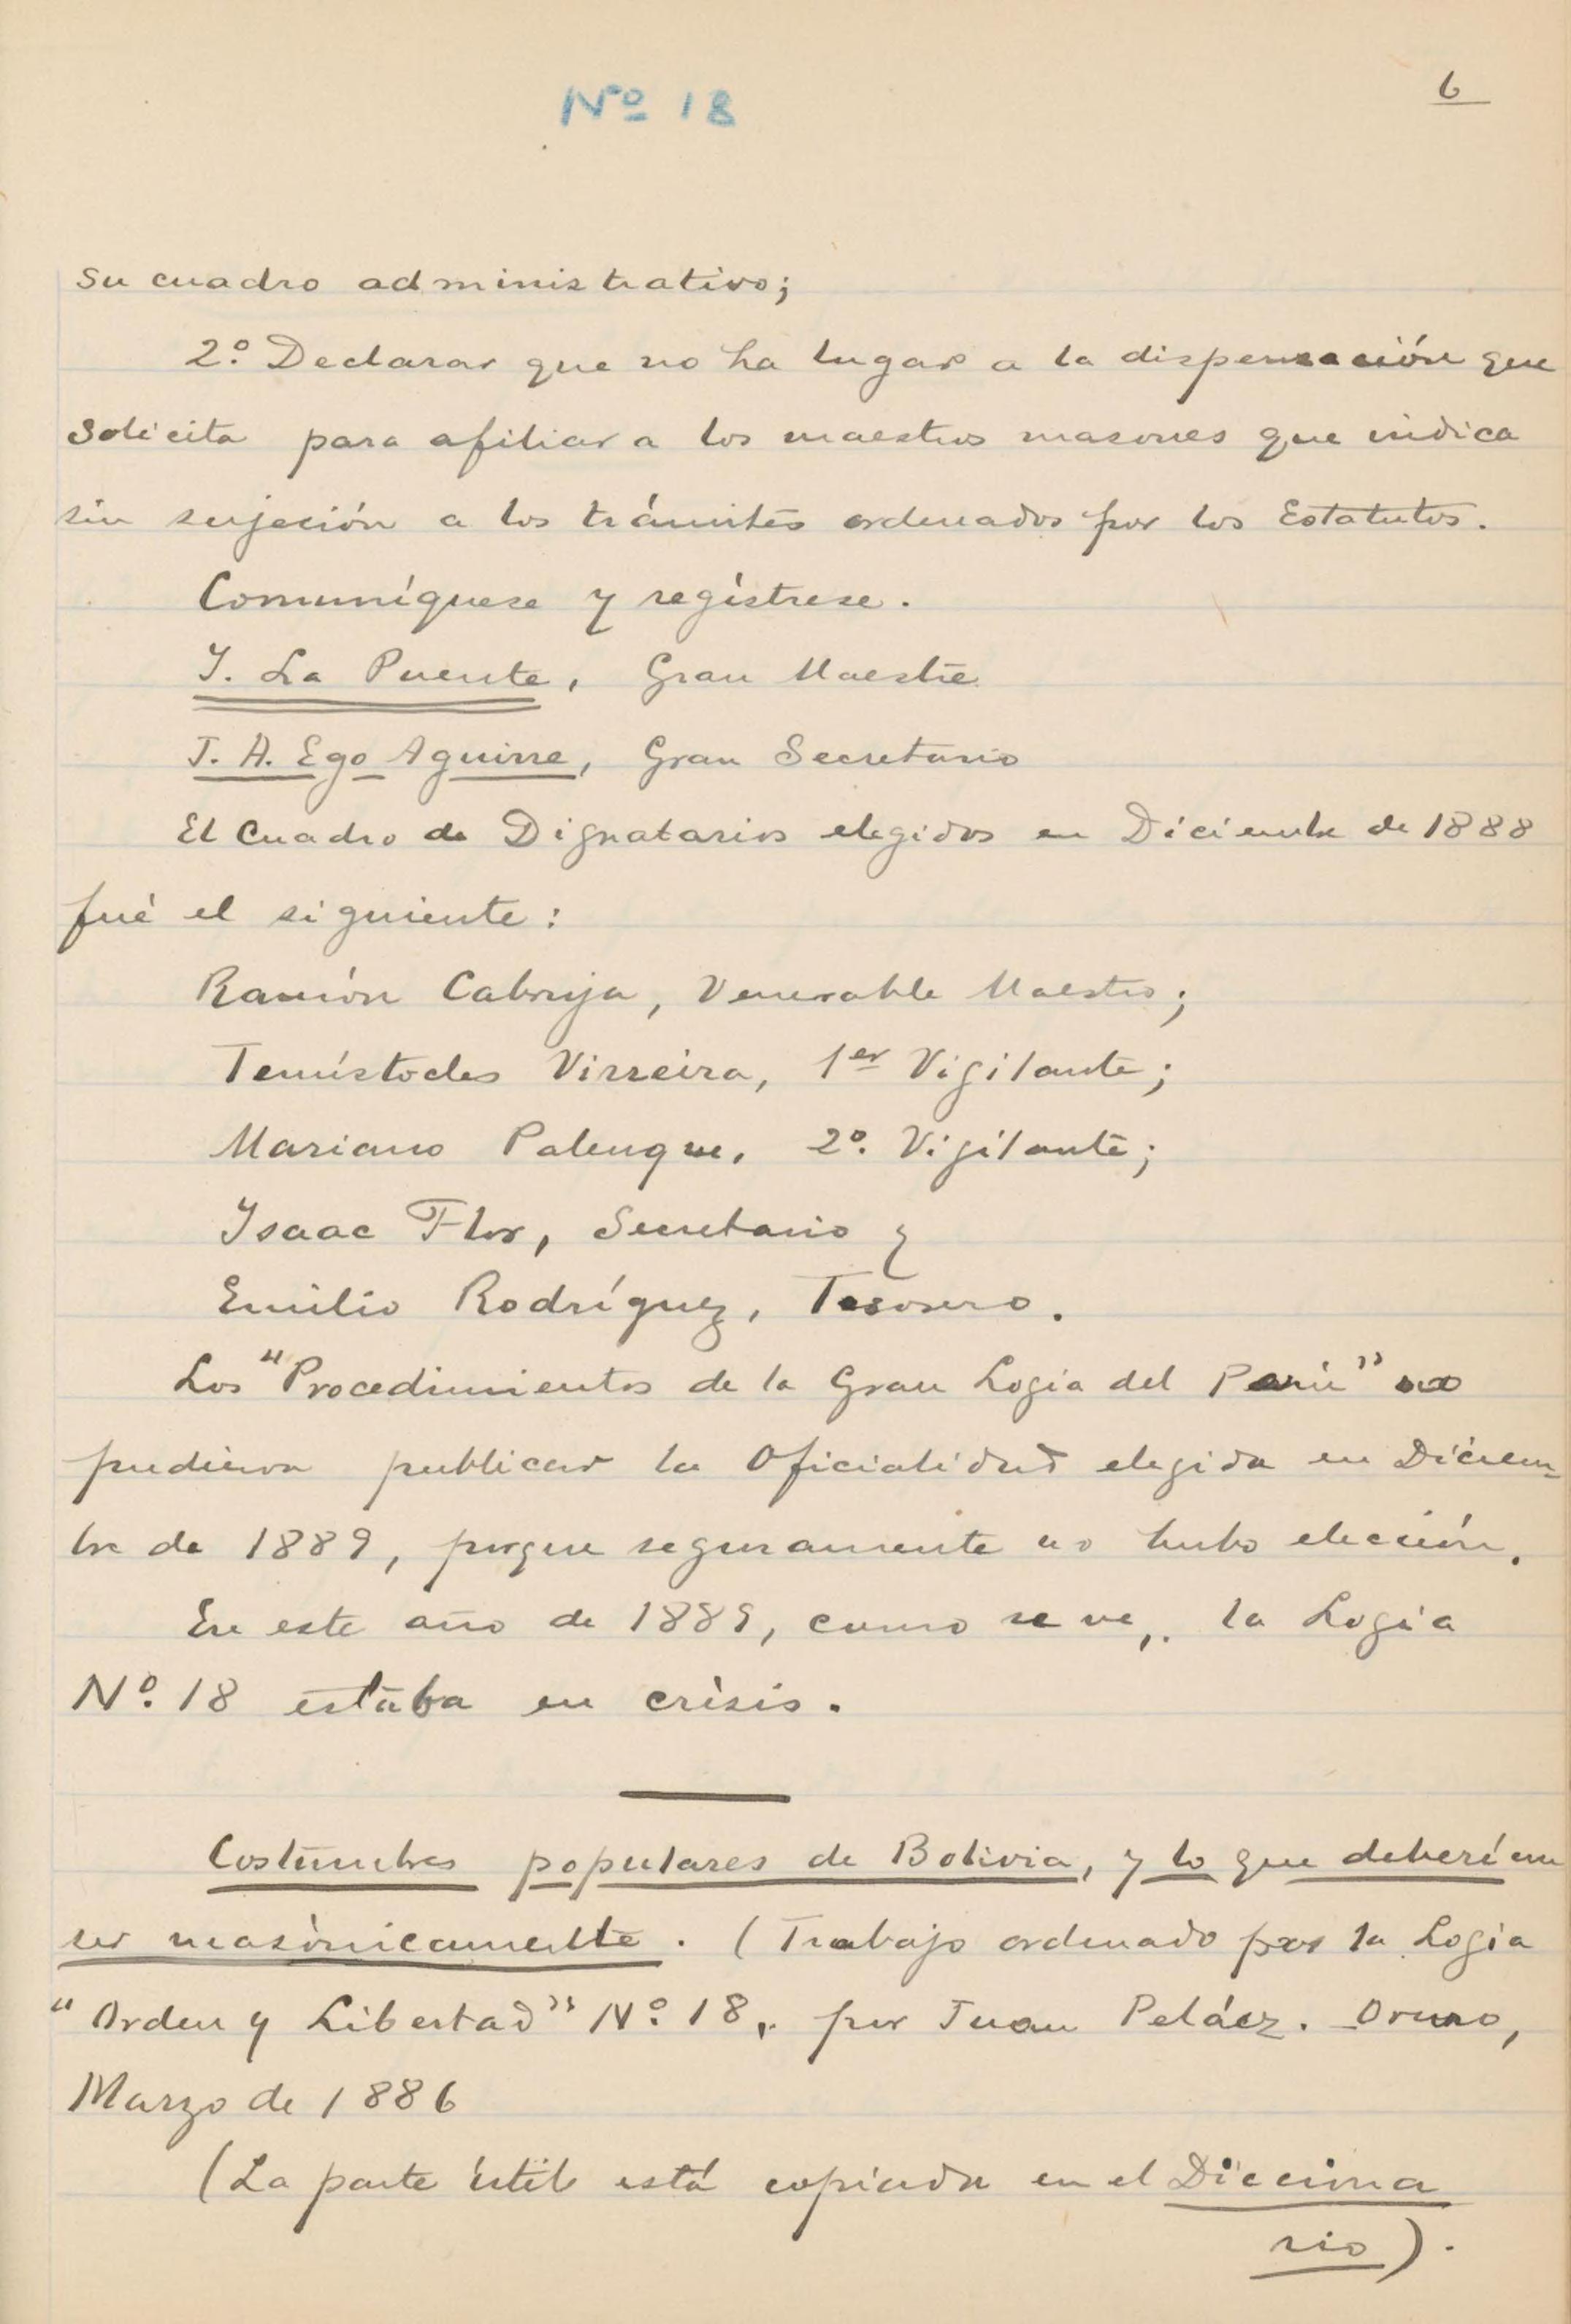 Nº 18
6
su cuadro administrativo;
2º. Declarar que no ha lugar a la dispensación que
solicita para afiliar a los maestros masones que indica
sin sujeción a los trámites ordenados por los Estatutos.
Comuníquese y regístrese.
I. La Puente, Gran Maestre
J. A. Ego Aguirre, Gran Secretario
El Cuadro de Dignatarios elegidos en Diciembre de 1888
fué el siguiente:
Ramón Cabruja, Venerable Maestro;
Temístocles Virreira, 1er Vigilante;
Mariano Palenque, 2º. Vigilante;
Isaac Flor, Secretario y
Emilio Rodríguez, Tesorero.
Los "Procedimientos de la Gran Logia del Perú" no
pudieron publicar la Oficialidad elegida en Diciem-
bre de 1889, porque seguramente no hubo elección.
En este año de 1889, como se ve, la Logia
Nº. 18 estaba en crisis.
Costumbres populares de Bolivia, y lo que deberían
ser masónicamente. (Trabajo ordenado por la Logia
"Orden y Libertad" Nº. 18, por Juan Peláez. Oruro,
Marzo de 1886
(La parte útil está copiada en el Dicciona
rio).